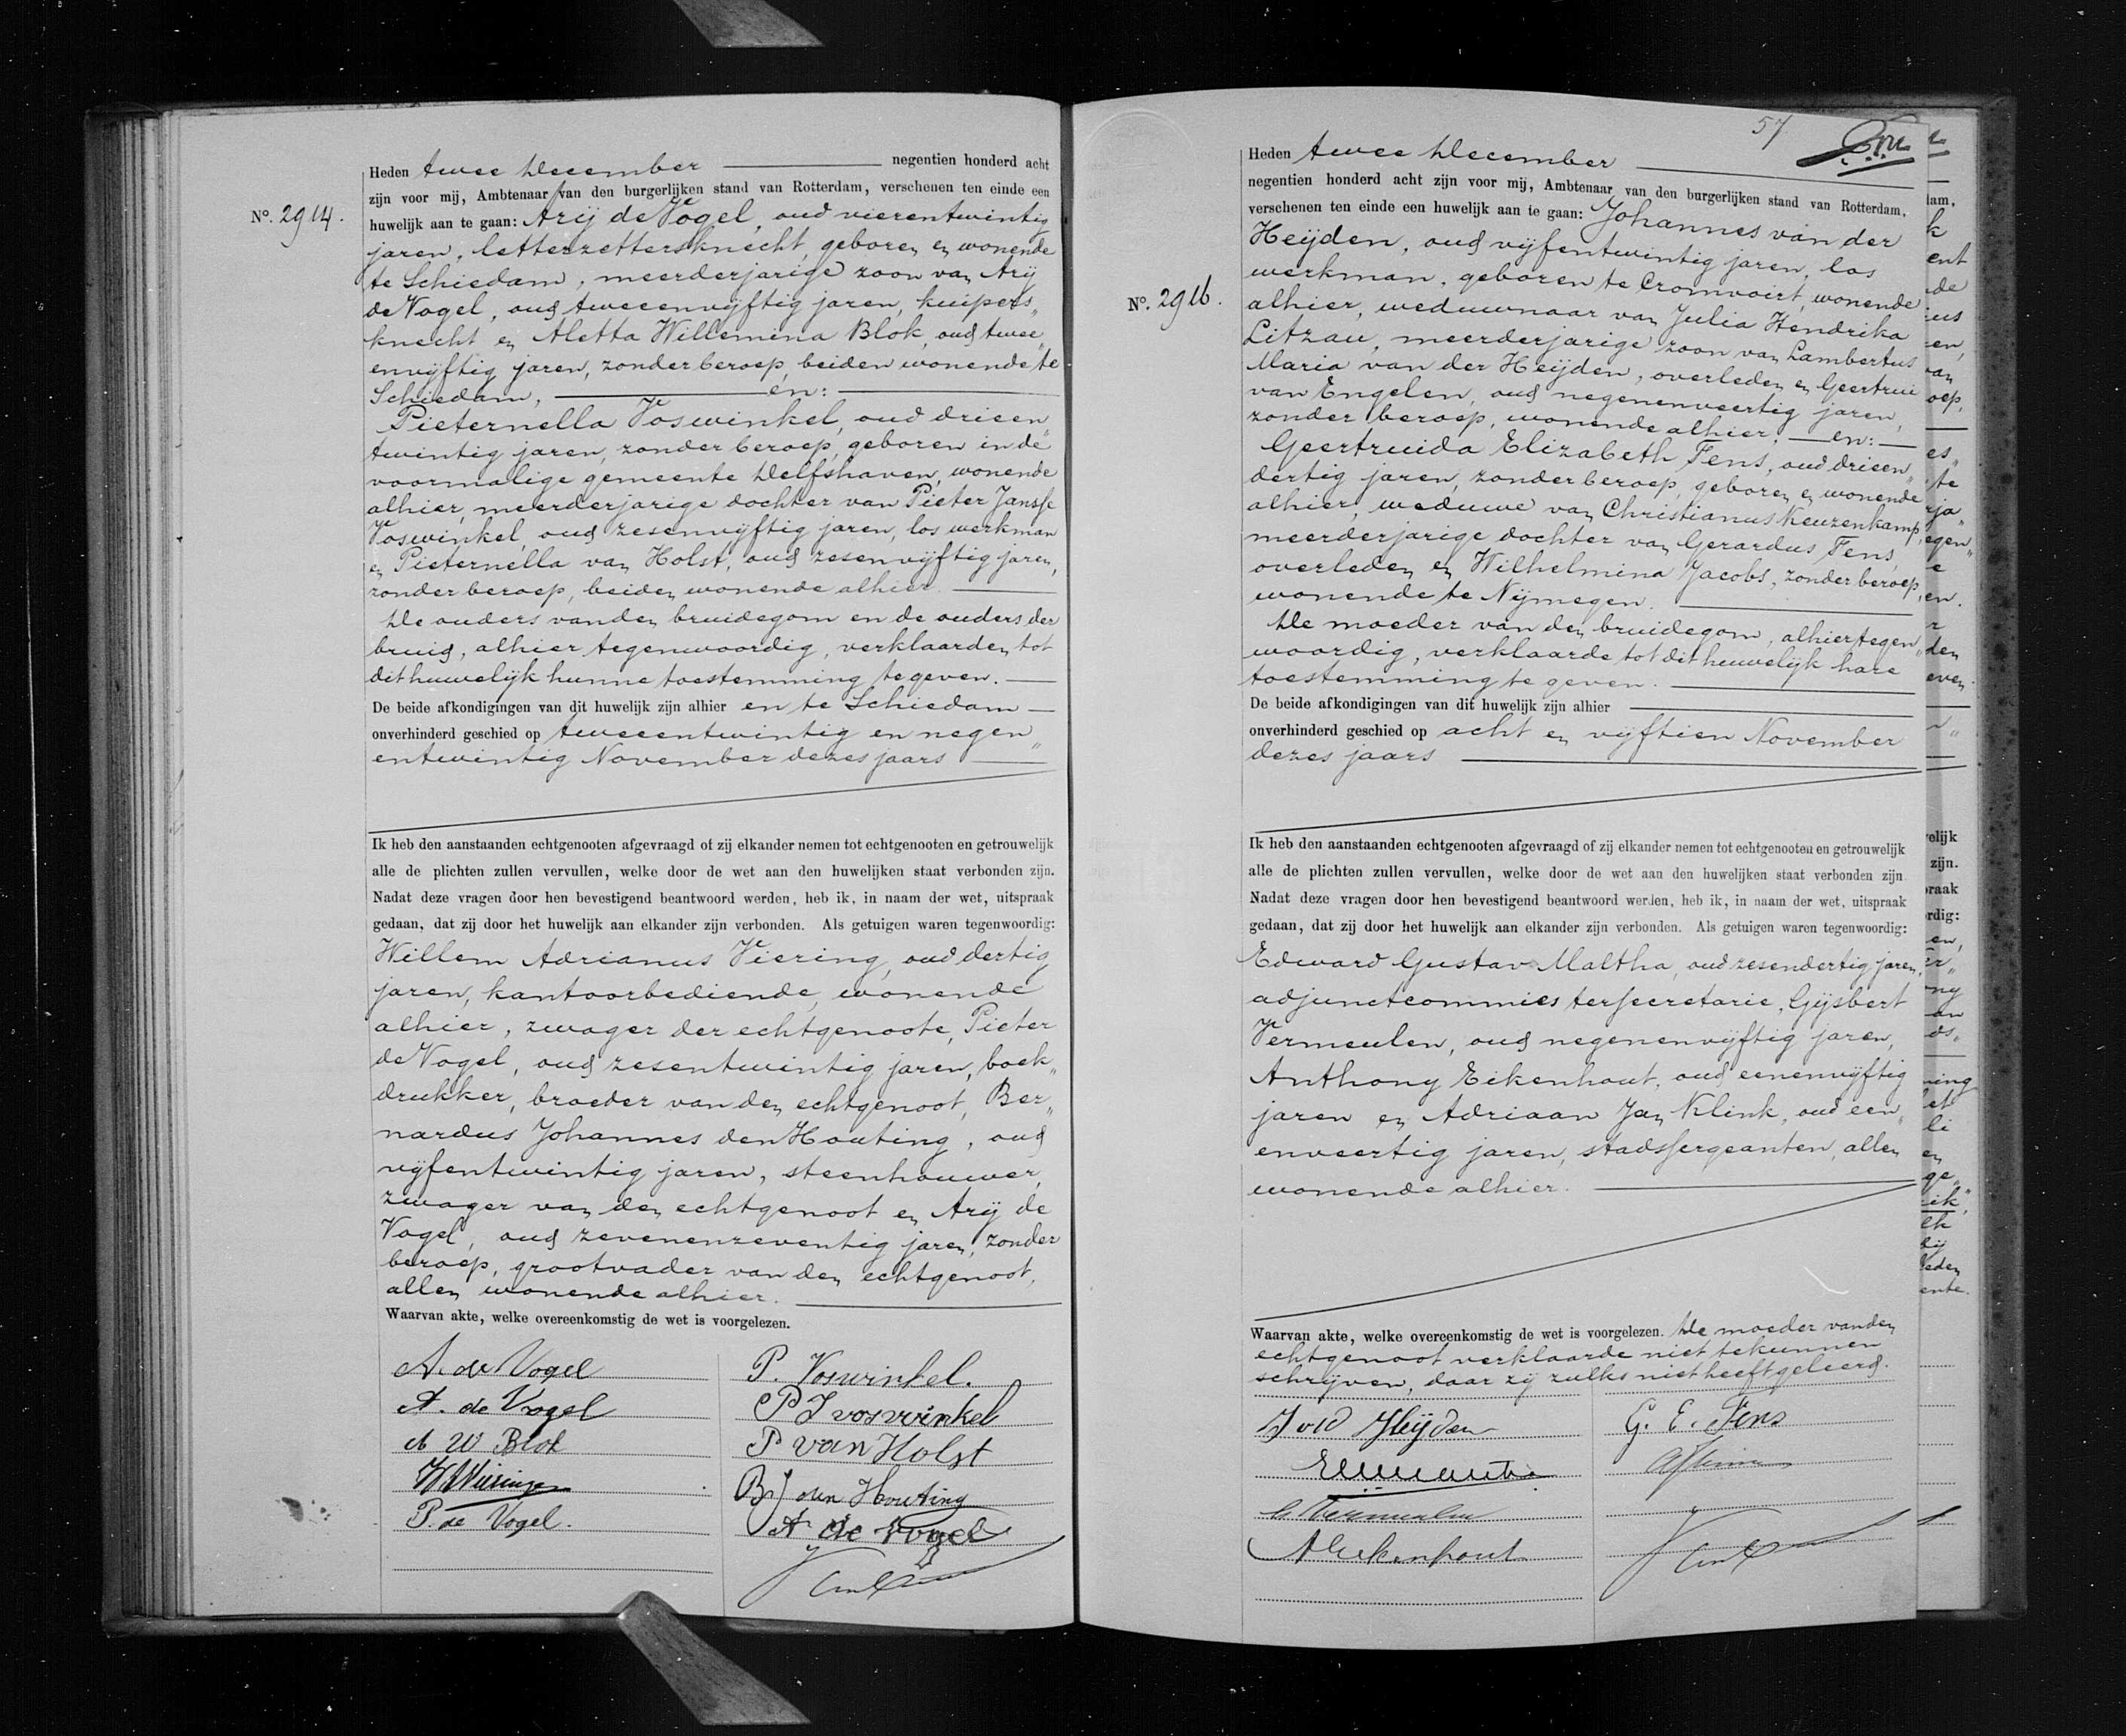 Heden twee December negentien honderd acht
zijn voor mij, Ambtenaar van den burgerlijken stand van Rotterdam, verschenen ten einde een
No. 2914.
huwelijk aan te gaan: Arij de Vogel, oud vierentwintig
jaren, letterzettersknecht, geboren en wonende
te Schiedam, meerderjarige zoon van Arij
de Vogel, oud tweeenvijftig jaren, kuipers„
knecht en Aletta Willemina Blok, oud twee„
envijftig jaren, zonder beroep, beiden wonende te
Schiedam, en:
Pieternella Voswinkel, oud drieen„
twintig jaren, zonder beroep, geboren in de
voormalige gemeente Delfshaven, wonende
alhier, meerderjarige dochter van Pieter Jansse
Voswinkel, oud zesenvijftig jaren, los werkman
en Pieternella van Holst, oud zesenvijftig jaren,
zonder beroep, beiden wonende alhier.
De ouders van den bruidegom en de ouders der
bruid, alhier tegenwoordig, verklaarden tot
dit huwelijk hunne toestemming te geven.
De beide afkondigingen van dit huwelijk zijn alhier en te Schiedam
onverhinderd geschied op tweeentwintig en negen„
entwintig November dezes jaars
Ik heb den aanstaanden echtgenooten afgevraagd of zij elkander nemen tot echtgenooten en getrouwelijk
alle de plichten zullen vervullen, welke door de wet aan den huwelijken staat verbonden zijn.
Nadat deze vragen door hen bevestigend beantwoord werden, heb ik, in naam der wet, uitspraak
gedaan, dat zij door het huwelijk aan elkander zijn verbonden. Als getuigen waren tegenwoordig:
Willem Adrianus Viering, oud dertig
jaren, kantoorbediende, wonende
alhier, zwager der echtgenoote, Pieter
de Vogel, oud zesentwintig jaren, boek„
drukker, broeder van den echtgenoot, Ber„
nardus Johannes den Houting, oud
vijfentwintig jaren, steenhouwer,
zwager van den echtgenoot en Arij de
Vogel, oud zevenenzeventig jaren, zonder
beroep, grootvader van den echtgenoot,
allen wonende alhier.
Waarvan akte, welke overeenkomstig de wet is voorgelezen.
A. de Vogel
P. Voswinkel.
A. de Vogel
P J voswinkel
A W Blok
P van Holst
B J den Houting
P. de Vogel.
A de Vogel
57
Heden twee December
negentien honderd acht zijn voor mij, Ambtenaar van den burgerlijken stand van Rotterdam,
verschenen ten einde een huwelijk aan te gaan: Johannes van der
Heijden, oud vijfentwintig jaren, los
werkman, geboren te Cromvoirt, wonende
No. 2916.
alhier, weduwnaar van Julia Hendrika
Litzau, meerderjarige zoon van Lambertus
Maria van der Heijden, overleden en Geertrui
van Engelen, oud negenenveertig jaren,
zonder beroep, wonende alhier, en:
Geertruida Elizabeth Fens, oud drieen„
dertig jaren, zonder beroep, geboren en wonende
alhier, weduwe van Christianus Keuzenkamp,
meerderjarige dochter van Gerardus Fens,
overleden en Wilhelmina Jacobs, zonder beroep,
wonende te Nijmegen.
De moeder van den bruidegom, alhier tegen„
woordig, verklaarde tot dit huwelijk hare
toestemming te geven.
De beide afkondigingen van dit huwelijk zijn alhier
onverhinderd geschied op acht en vijftien November
dezes jaars
Ik heb den aanstaanden echtgenooten afgevraagd of zij elkander nemen tot echtgenooten en getrouwelijk
alle de plichten zullen vervullen, welke door de wet aan den huwelijken staat verbonden zijn
Nadat deze vragen door hen bevestigend beantwoord werden, heb ik, in naam der wet, uitspraak
gedaan, dat zij door het huwelijk aan elkander zijn verbonden. Als getuigen waren tegenwoordig:
Edward Gustav Maltha, oud zesendertig jaren,
adjunctcommies ter secretarie, Gijsbert
Vermeulen, oud negenenvijftig jaren,
Anthony Eikenhout, oud eenenvijftig
jaren en Adriaan Jan Klink, oud een„
enveertig jaren, stadssergeanten, allen
wonende alhier.
Waarvan akte, welke overeenkomstig de wet is voorgelezen. De moeder van den
echtgenoot verklaarde niet te kunnen
schrijven, daar zij zulks niet heeft geleerd.
J v d Heijden
G. E. Fens
G Vermeulen
A Eikenhout